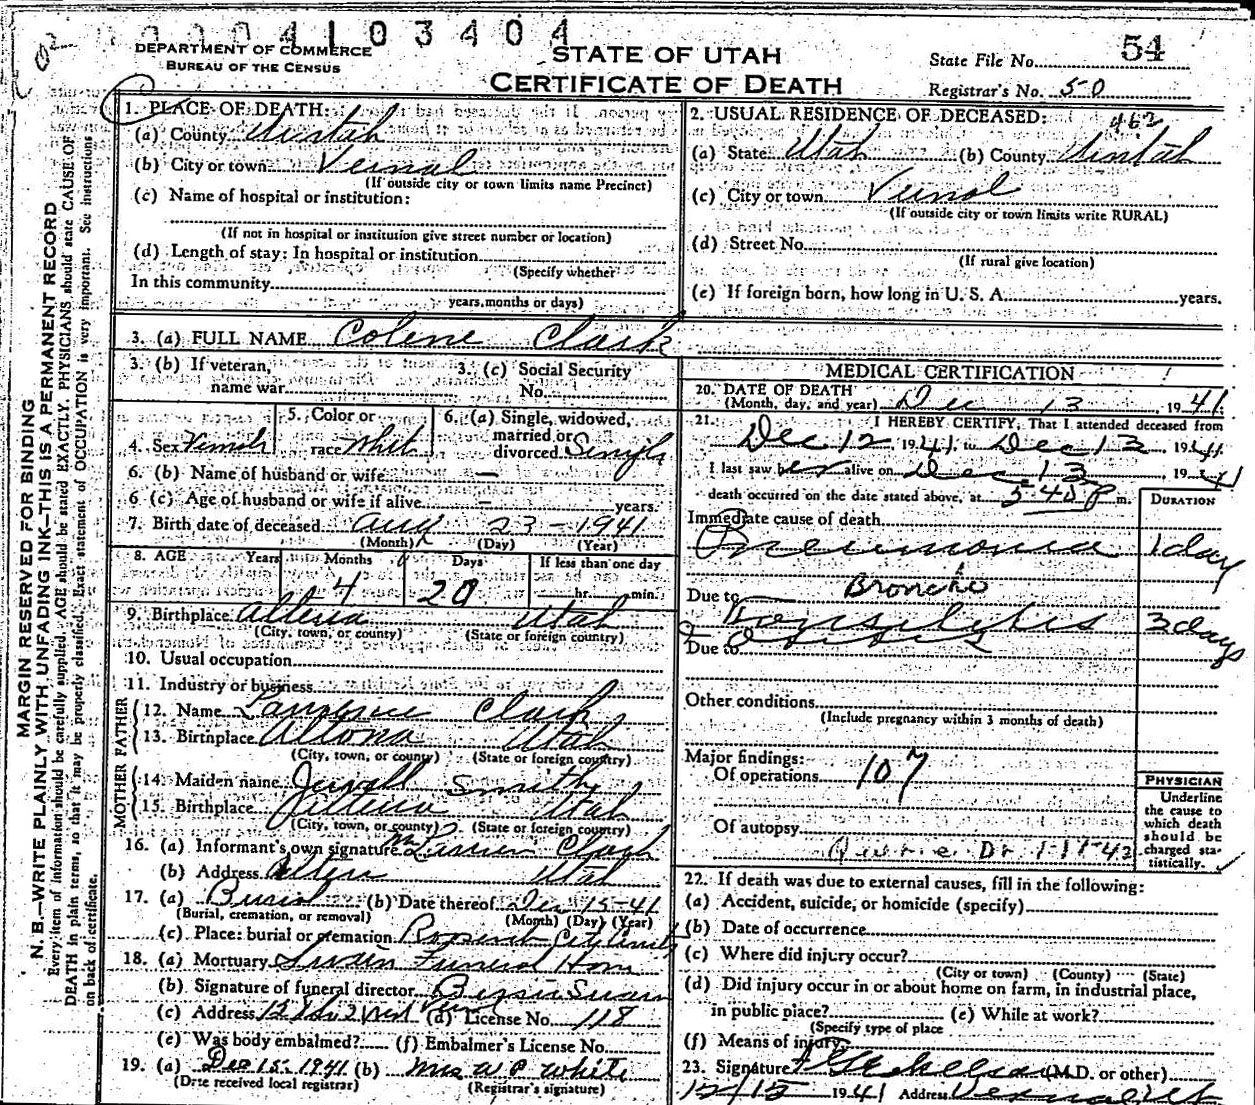 0004103404
DEPARTMENT OF COMMERCE
BUREAU OF THE CENSUS
STATE OF UTAH
CERTIFICATE OF DEATH
State File No. 54
Registrar's No. 50
MARGIN RESERVED FOR BINDING
N. B.—WRITE PLAINLY WITH UNFADING INK—THIS IS A PERMANENT RECORD
Every item of information should be carefully supplied. AGE should be stated EXACTLY. PHYSICIANS should state CAUSE OF
DEATH in plain terms, so that it may be properly classified. Exact statement of OCCUPATION is very important. See instructions
on back of certificate.
1. PLACE OF DEATH:
(a) County Uintah
(b) City or town Vernal
(If outside city or town limits name Precinct)
(c) Name of hospital or institution:
(If not in hospital or institution give street number or location)
(d) Length of stay: In hospital or institution
(Specify whether
In this community
years, months or days)
2. USUAL RESIDENCE OF DECEASED: 462
(a) State Utah (b) County Uintah
(c) City or town Vernal
(If outside city or town limits write RURAL)
(d) Street No.
(If rural give location)
(e) If foreign born, how long in U. S. A. years.
3. (a) FULL NAME Colene Clark
3. (b) If veteran, name war
3. (c) Social Security No.
4. Sex Female
5. Color or race White
6. (a) Single, widowed, married or divorced Single
6. (b) Name of husband or wife —
6 (c) Age of husband or wife if alive — years.
7. Birth date of deceased Aug 23 - 1941
(Month) (Day) (Year)
8. AGE Years Months Days If less than one day
4 20 hr. min.
9. Birthplace Altera Utah
(City, town, or county) (State or foreign country)
10. Usual occupation
11. Industry or business
FATHER
12. Name Lawrence Clark
13. Birthplace Altona Utah
(City, town, or county) (State or foreign country)
MOTHER
14. Maiden name Jewell Smith
15. Birthplace Utah
(City, town, or county) (State or foreign country)
16. (a) Informant's own signature Clark
(b) Address Utah
17. (a) Burial (b) Date thereof Dec 15-41
(Burial, cremation, or removal) (Month) (Day) (Year)
(c) Place: burial or cremation
18. (a) Mortuary Swain Funeral Home
(b) Signature of funeral director Swain
(c) Address (d) License No. 118
(e) Was body embalmed? (f) Embalmer's License No.
19. (a) Dec 15. 1941 (b) Mrs W P White
(Date received local registrar) (Registrar's signature)
MEDICAL CERTIFICATION
20. DATE OF DEATH
(Month, day, and year) Dec 13, 1941
21. I HEREBY CERTIFY, That I attended deceased from
Dec 12 1941, to Dec 13, 1941
I last saw her alive on Dec 13, 1941
death occurred on the date stated above, at 5:40 P m.
DURATION
Immediate cause of death
Pneumonia 1 day
Broncho
Due to
Tonsilitis 3 days
Due to
Other conditions
(Include pregnancy within 3 months of death)
Major findings:
Of operations 107
Of autopsy
PHYSICIAN
Underline
the cause to
which death
should be
charged sta-
tistically.
22. If death was due to external causes, fill in the following:
(a) Accident, suicide, or homicide (specify)
(b) Date of occurrence
(c) Where did injury occur?
(City or town) (County) (State)
(d) Did injury occur in or about home on farm, in industrial place,
in public place? (e) While at work?
(Specify type of place
(f) Means of injury
23. Signature (M.D. or other)
12/15 1941 Address Vernal Ut